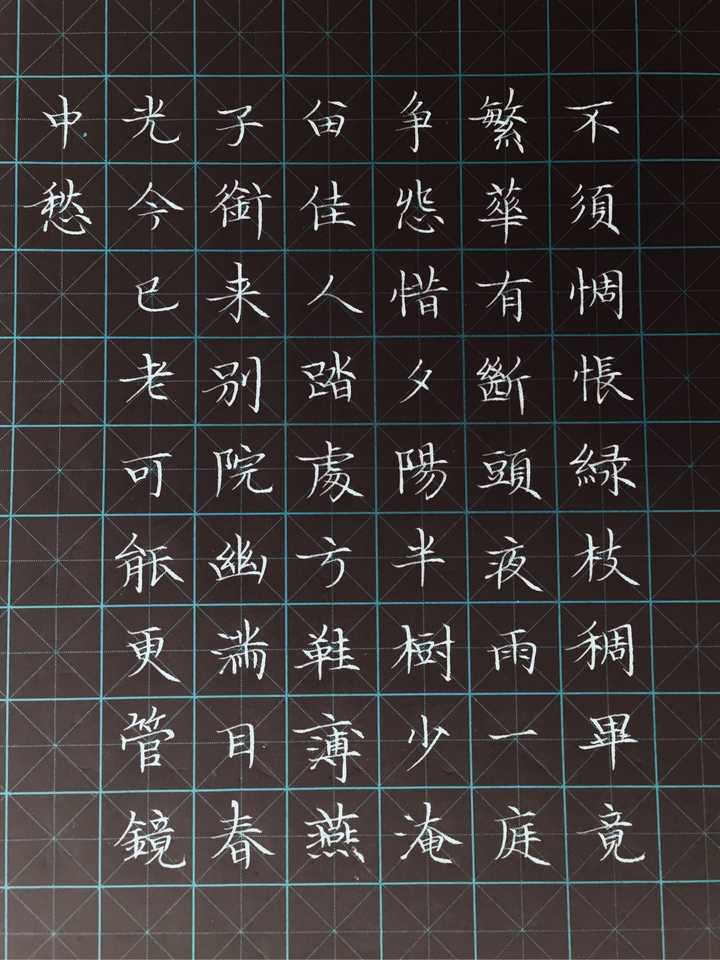 不須惆悵緑枝稠畢竟
繁華有斷頭夜雨一庭
争怨惜夕陽半樹少淹
留佳人踏處方鞋薄燕
子銜来别院幽滿目春
光今已老可能更管鏡
中愁